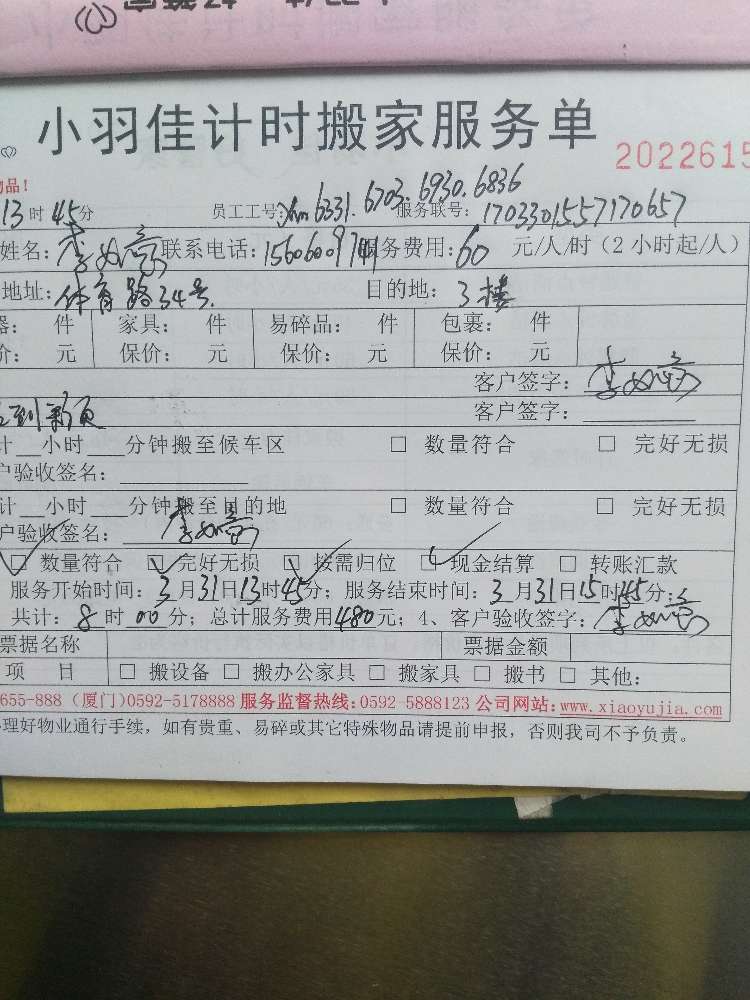 小羽佳计时搬家服务单
2022615
物品！
13时45分 员工工号: 6331.6703.6930.6836 服务联号: 1703301557170657
姓名: 李 联系电话: 15606009741 服务费用: 60 元/人/时（2小时起/人）
地址: 体育路34号. 目的地: 3楼
器: 件 家具: 件 易碎品: 件 包裹: 件
价: 元 保价: 元 保价: 元 保价: 元
客户签字: 李
到 客户签字:
计__小时___分钟搬至候车区 □ 数量符合 □ 完好无损
户验收签名:
计__小时___分钟搬至目的地 □ 数量符合 □ 完好无损
户验收签名: 李
☑ 数量符合 ☑ 完好无损 ☑ 按需归位 ☑ 现金结算 □ 转账汇款
服务开始时间: 3月31日13时45分; 服务结束时间: 3月31日15时45分;
共计: 8时00分; 总计服务费用480元; 4、客户验收签字: 李
票据名称 票据金额
项 目 □ 搬设备 □ 搬办公家具 □ 搬家具 □ 搬书 □ 其他:
655-888 (厦门)0592-5178888 服务监督热线:0592-5888123 公司网站:www.xiaoyujia.com
理好物业通行手续，如有贵重、易碎或其它特殊物品请提前申报，否则我司不予负责。